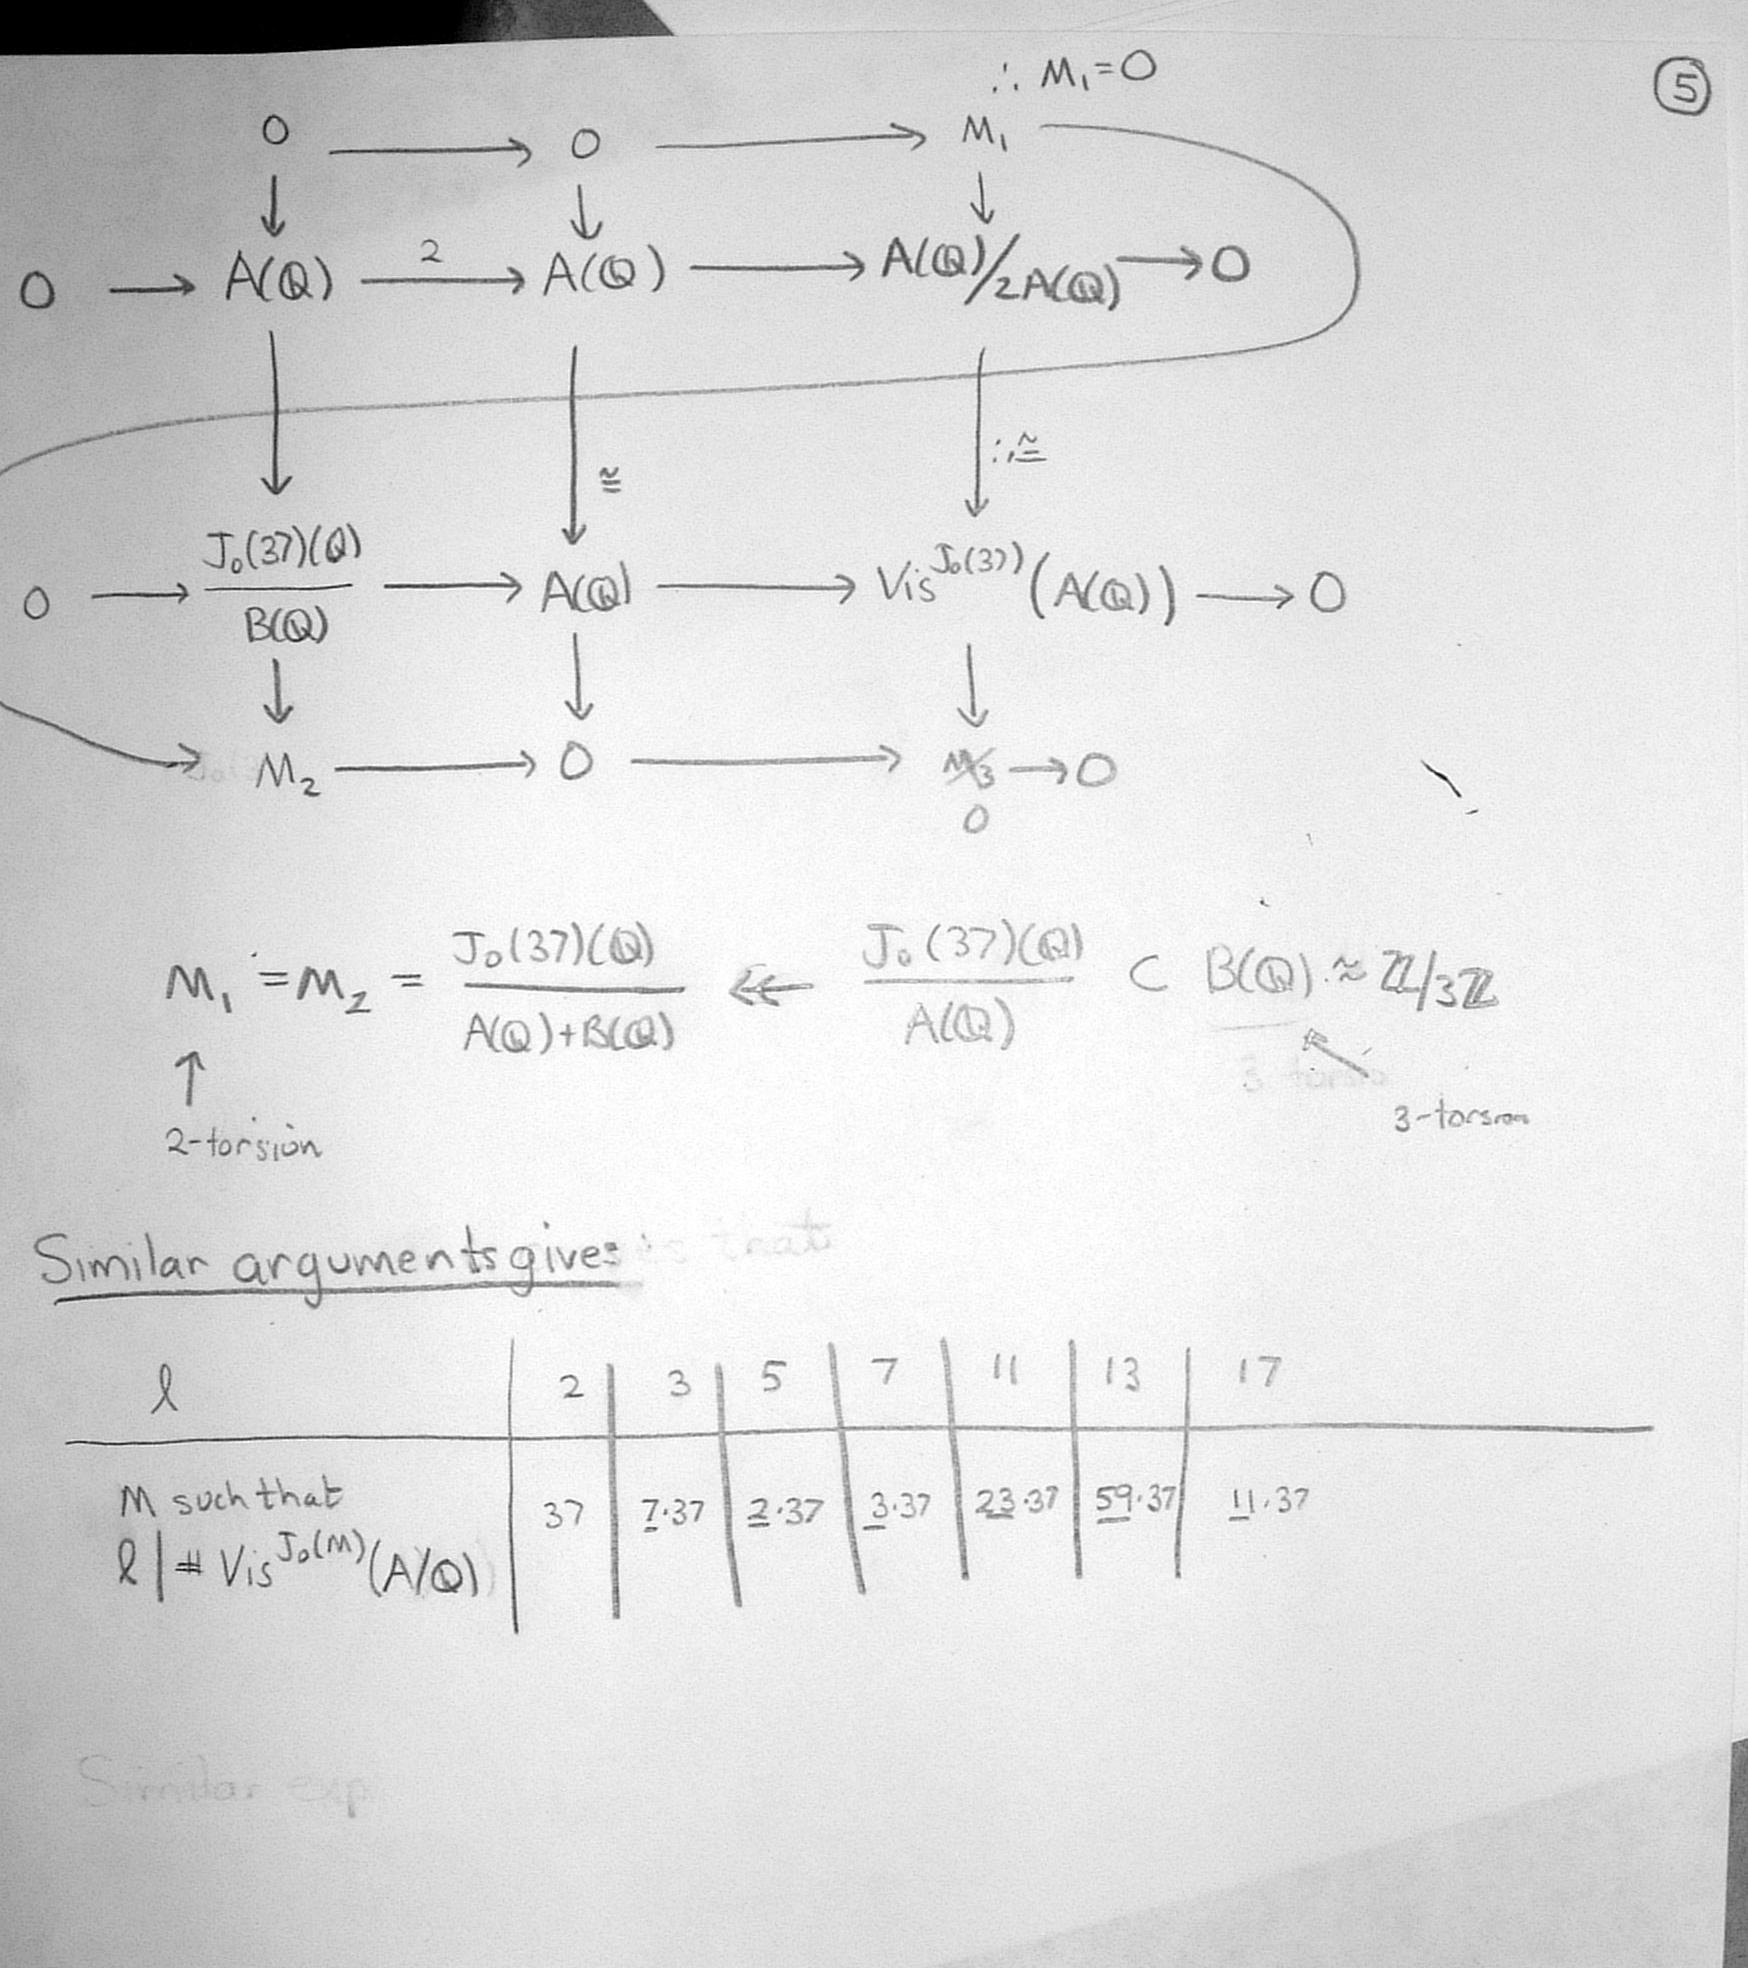 ∴ M₁=0
⑤
0 → 0 → M₁
0 → A(Q) →² A(Q) → A(Q)/2A(Q) → 0
≅ ∴≅
0 → J₀(37)(Q)/B(Q) → A(Q) → Vis^J₀(37) (A(Q)) → 0
M₂ → 0 → M₃ → 0
0
M₁ = M₂ = J₀(37)(Q)/A(Q)+B(Q) ↞ J₀(37)(Q)/A(Q) ⊂ B(Q) ≈ Z/3Z
↑
2-torsion
3-torsion
Similar arguments give:
l | 2 | 3 | 5 | 7 | 11 | 13 | 17
M such that 37 | 7·37 | 2·37 | 3·37 | 23·37 | 59·37 | 11·37
l | # Vis^J₀(M) (A/Q)
Similar exp